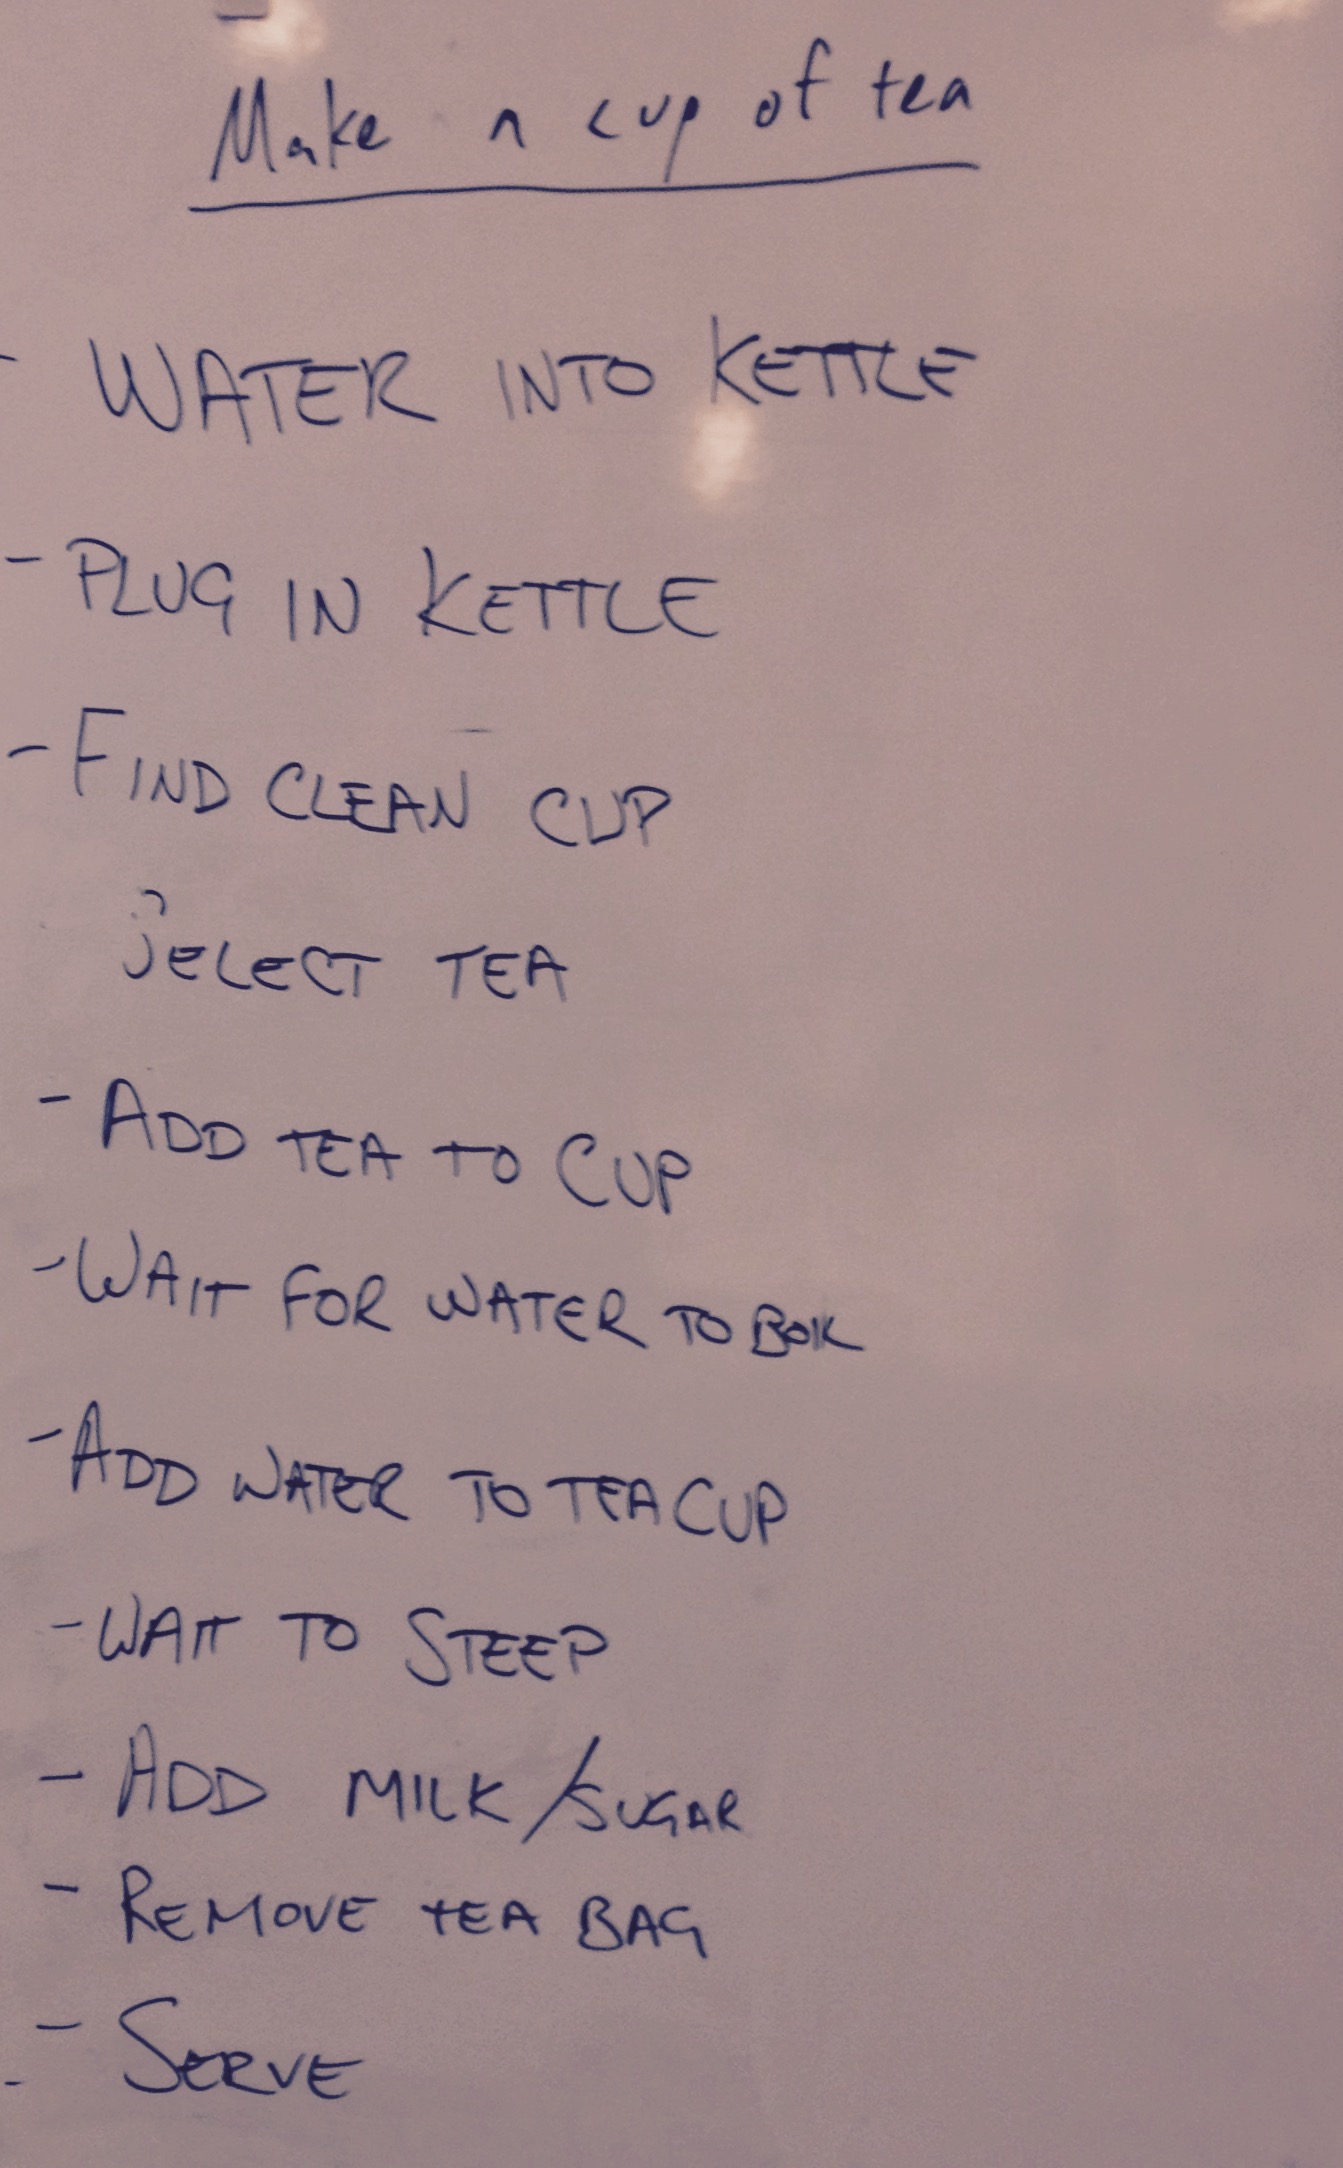 Make a cup of tea
- WATER INTO KETTLE
- PLUG IN KETTLE
- FIND CLEAN CUP
SELECT TEA
- ADD TEA TO CUP
- WAIT FOR WATER TO BOIL
- ADD WATER TO TEA CUP
- WAIT TO STEEP
- ADD MILK/SUGAR
- REMOVE TEA BAG
- SERVE